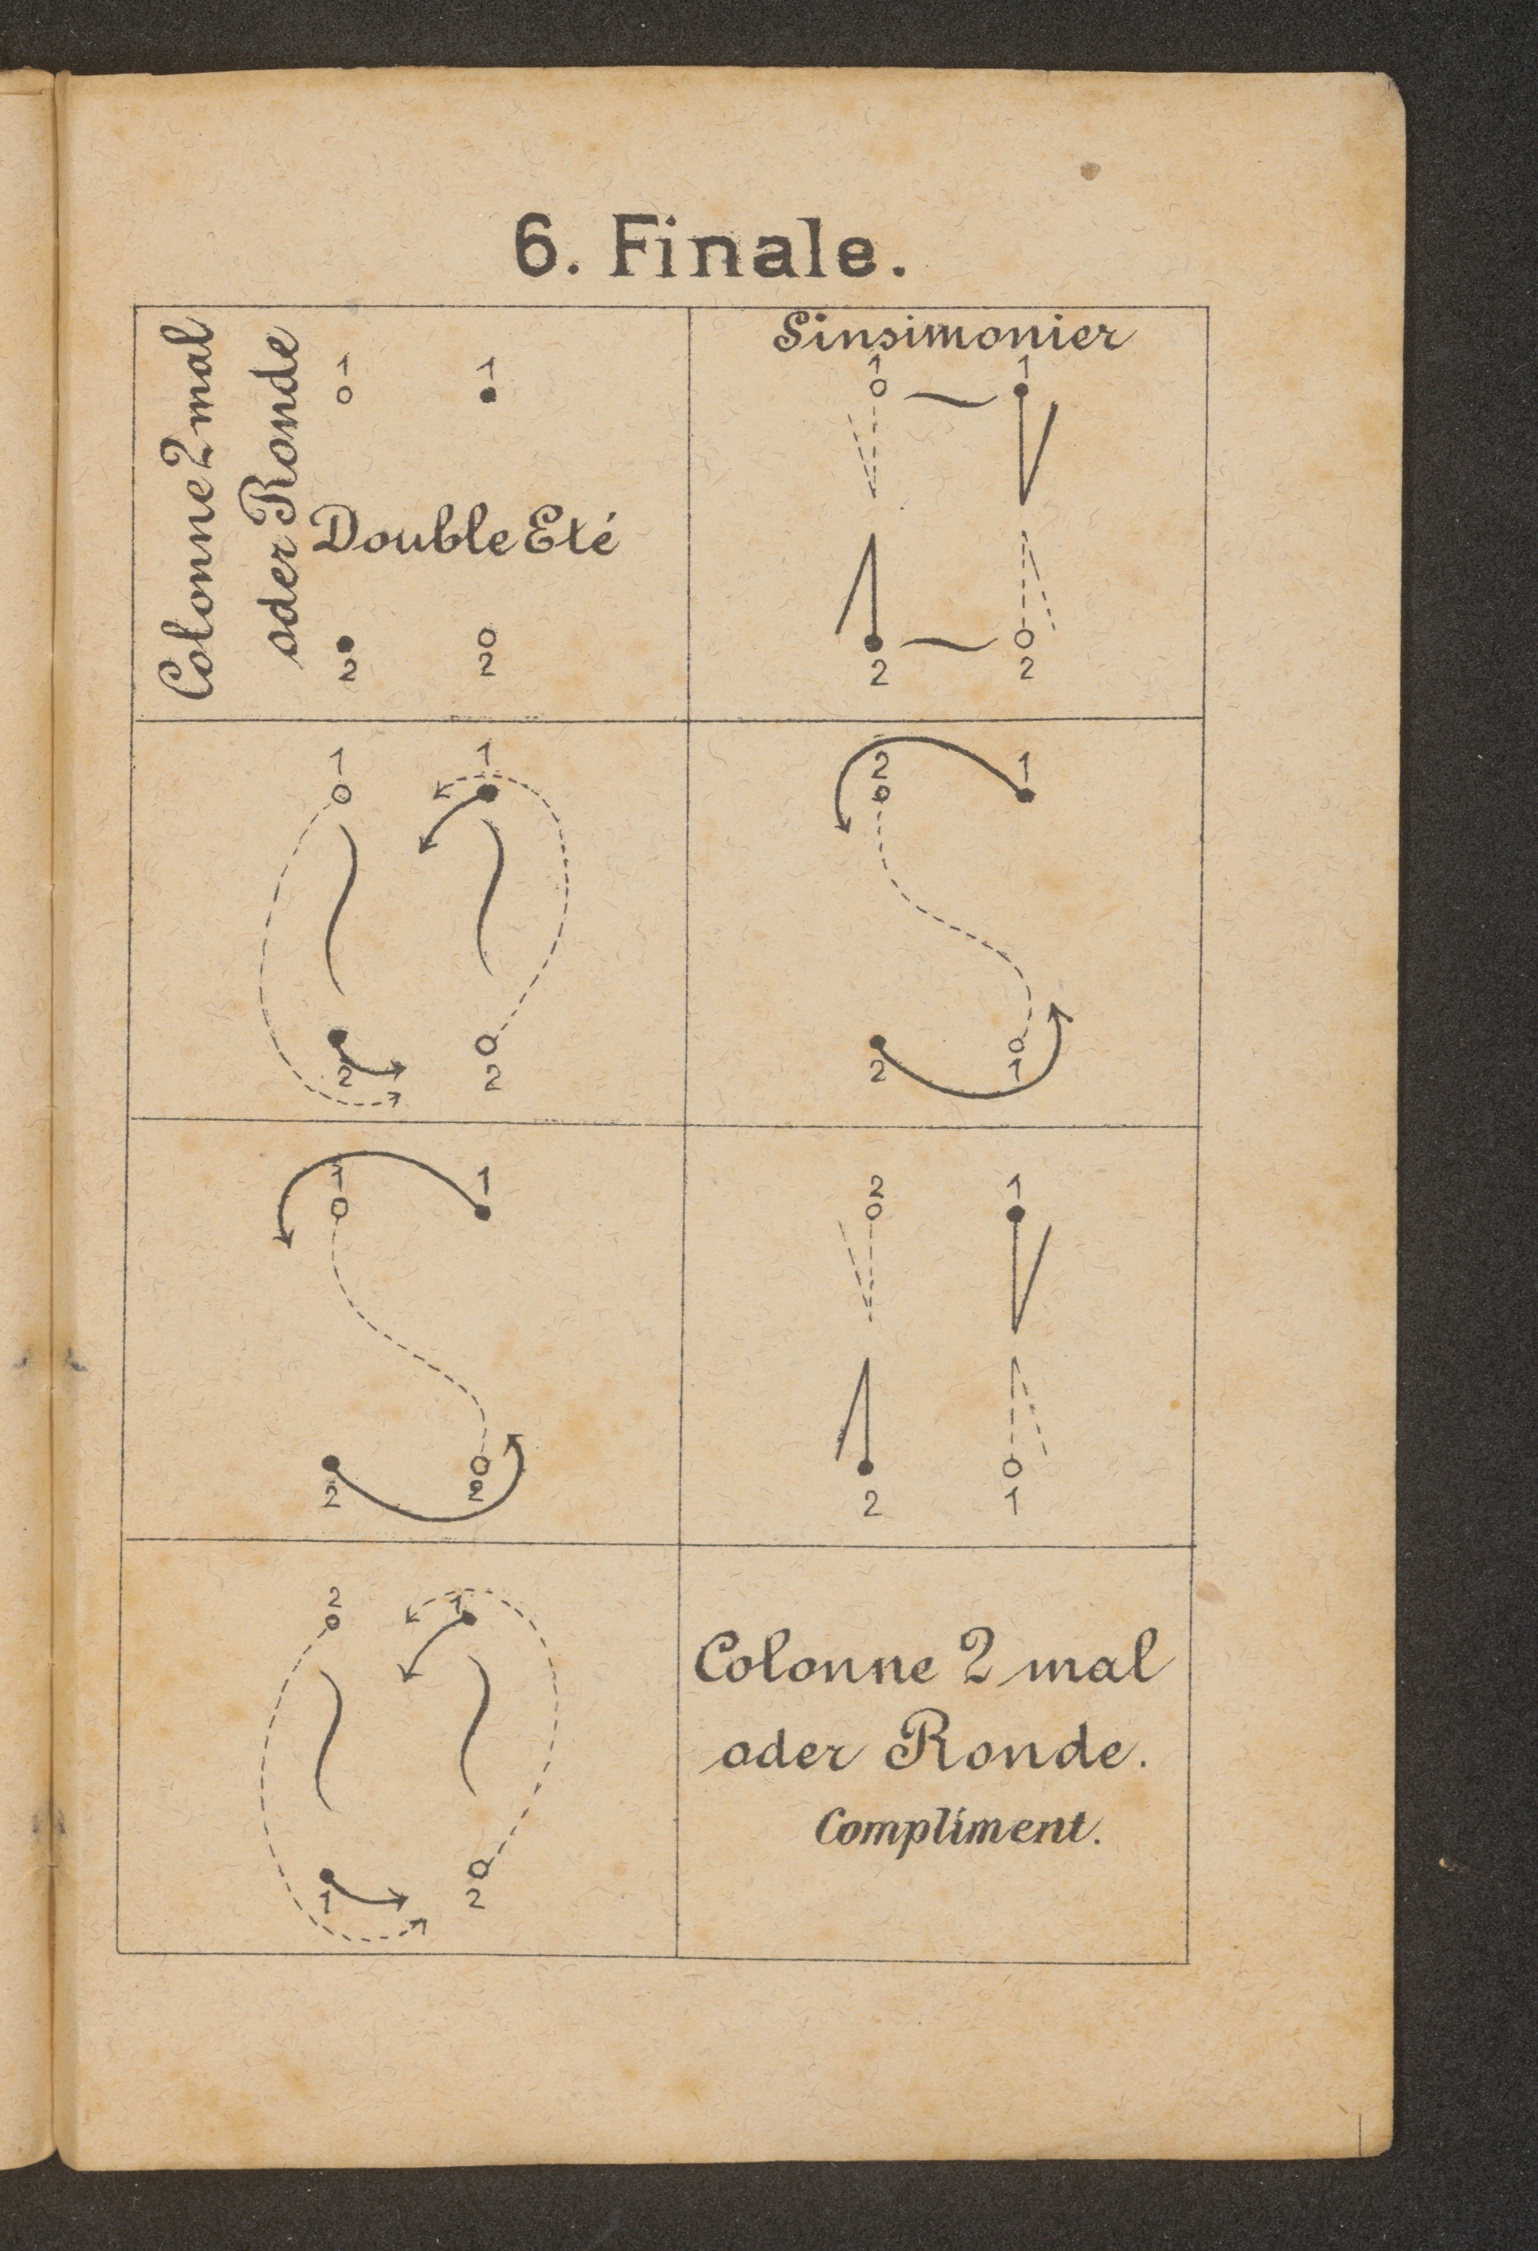 6. Finale.
Colonne 2 mal
oder Ronde
1 1
Double Eté
2 2
Sinsimonier
1 1
2 2
1 1
2 2
2 1
2 1
1 1
2 2
2 1
2 1
2 1
1 2
Colonne 2 mal
oder Ronde.
Compliment.